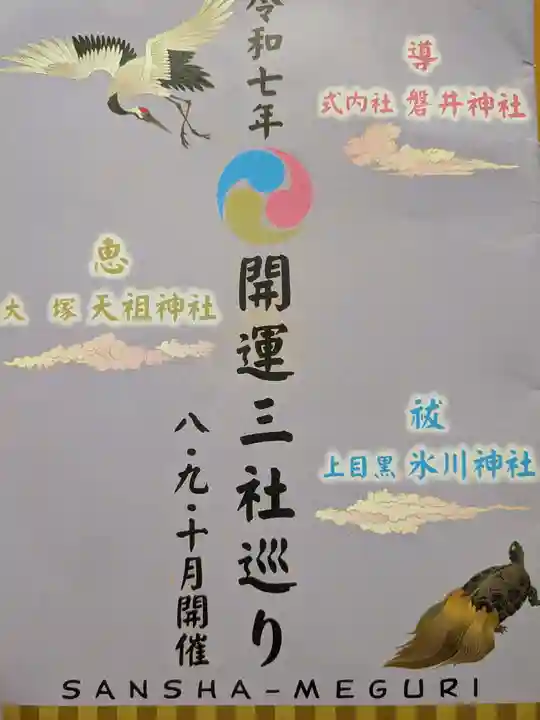 令和七年
開運三社巡り
八・九・十月開催
導
式内社 磐井神社
恵
大塚 天祖神社
祓
上目黒 氷川神社
SANSHA-MEGURI